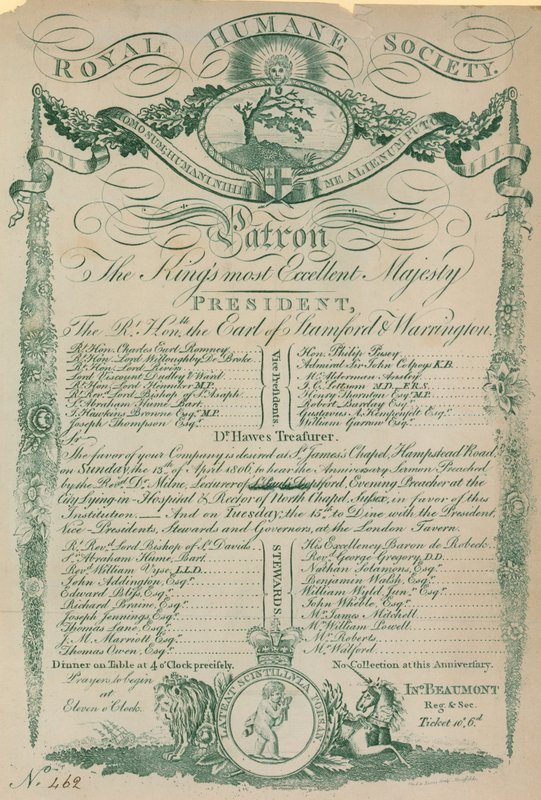 ROYAL HUMANE SOCIETY.
HOMO SUM; HUMANI NIHIL A ME ALIENUM PUTO
Patron
The King's most Excellent Majesty
PRESIDENT,
The Rt. Honble. the Earl of Stamford & Warrington.
Vice Presidents.
Rt. Hon. Charles Earl Romney
Rt. Hon. Lord Willoughby De Broke
Rt. Hon. Lord Rivers
Lord Viscount Dudley & Ward
Rt. Hon. Lord Henniker M.P.
Rt. Rev. Lord Bishop of St. Asaph
Sr. Abraham Hume Bart.
I. Hawkins Browne Esqr. M.P.
Joseph Thompson Esqr.
Hon. Philip Pusey
Admiral Sir John Colpoys K.B.
Wm. Aldermore Ansley
J. C. Lettsom M.D. F.R.S.
Henry Thornton Esqr. M.P.
Robert Barclay Esqr.
Gustavus A. Kempenfelt Esqr.
William Garrow Esqr.
Dr. Hawes Treasurer.
Sir
The favor of your Company is desired at St. James's Chapel, Hampstead Road,
on Sunday, the 13th of April 1806, to hear the Anniversary Sermon Preached
by the Revd. Dr. Milne, Lecturer of Deptford, Evening Preacher at the
City Lying-in-Hospital & Rector of North Chapel, Sussex, in favor of this
Institution. And on Tuesday, the 15th to Dine with the President,
Vice-Presidents, Stewards and Governors, at the London Tavern.
STEWARDS
Rt. Revd. Lord Bishop of St. Davids
Sr. Abraham Hume, Bart.
Revd. William Vyse, L.L.D.
John Addington, Esqr.
Edward Bliss, Esqr.
Richard Braine, Esqr.
Joseph Jennings, Esqr.
Thomas Lane, Esqr.
J. M. Marriott Esqr.
Thomas Owen, Esqr.
His Excellency Baron de Robeck
Revd. George Gregory, D.D.
Nathan Solamons, Esqr.
Benjamin Walsh, Esqr.
William Wylel Junr. Esqr.
John Wheble, Esqr.
Mr. James Mitchell
Mr. William Powell
Mr. Roberts
Mr. Walford
Dinner on Table at 4 o'Clock precisely.
No Collection at this Anniversary.
Prayers to begin
at
Eleven o'Clock.
LATEAT SCINTILLVLA FORSAN
Jno. BEAUMONT
Reg. & Sec.
Ticket 10s. 6d
No. 462